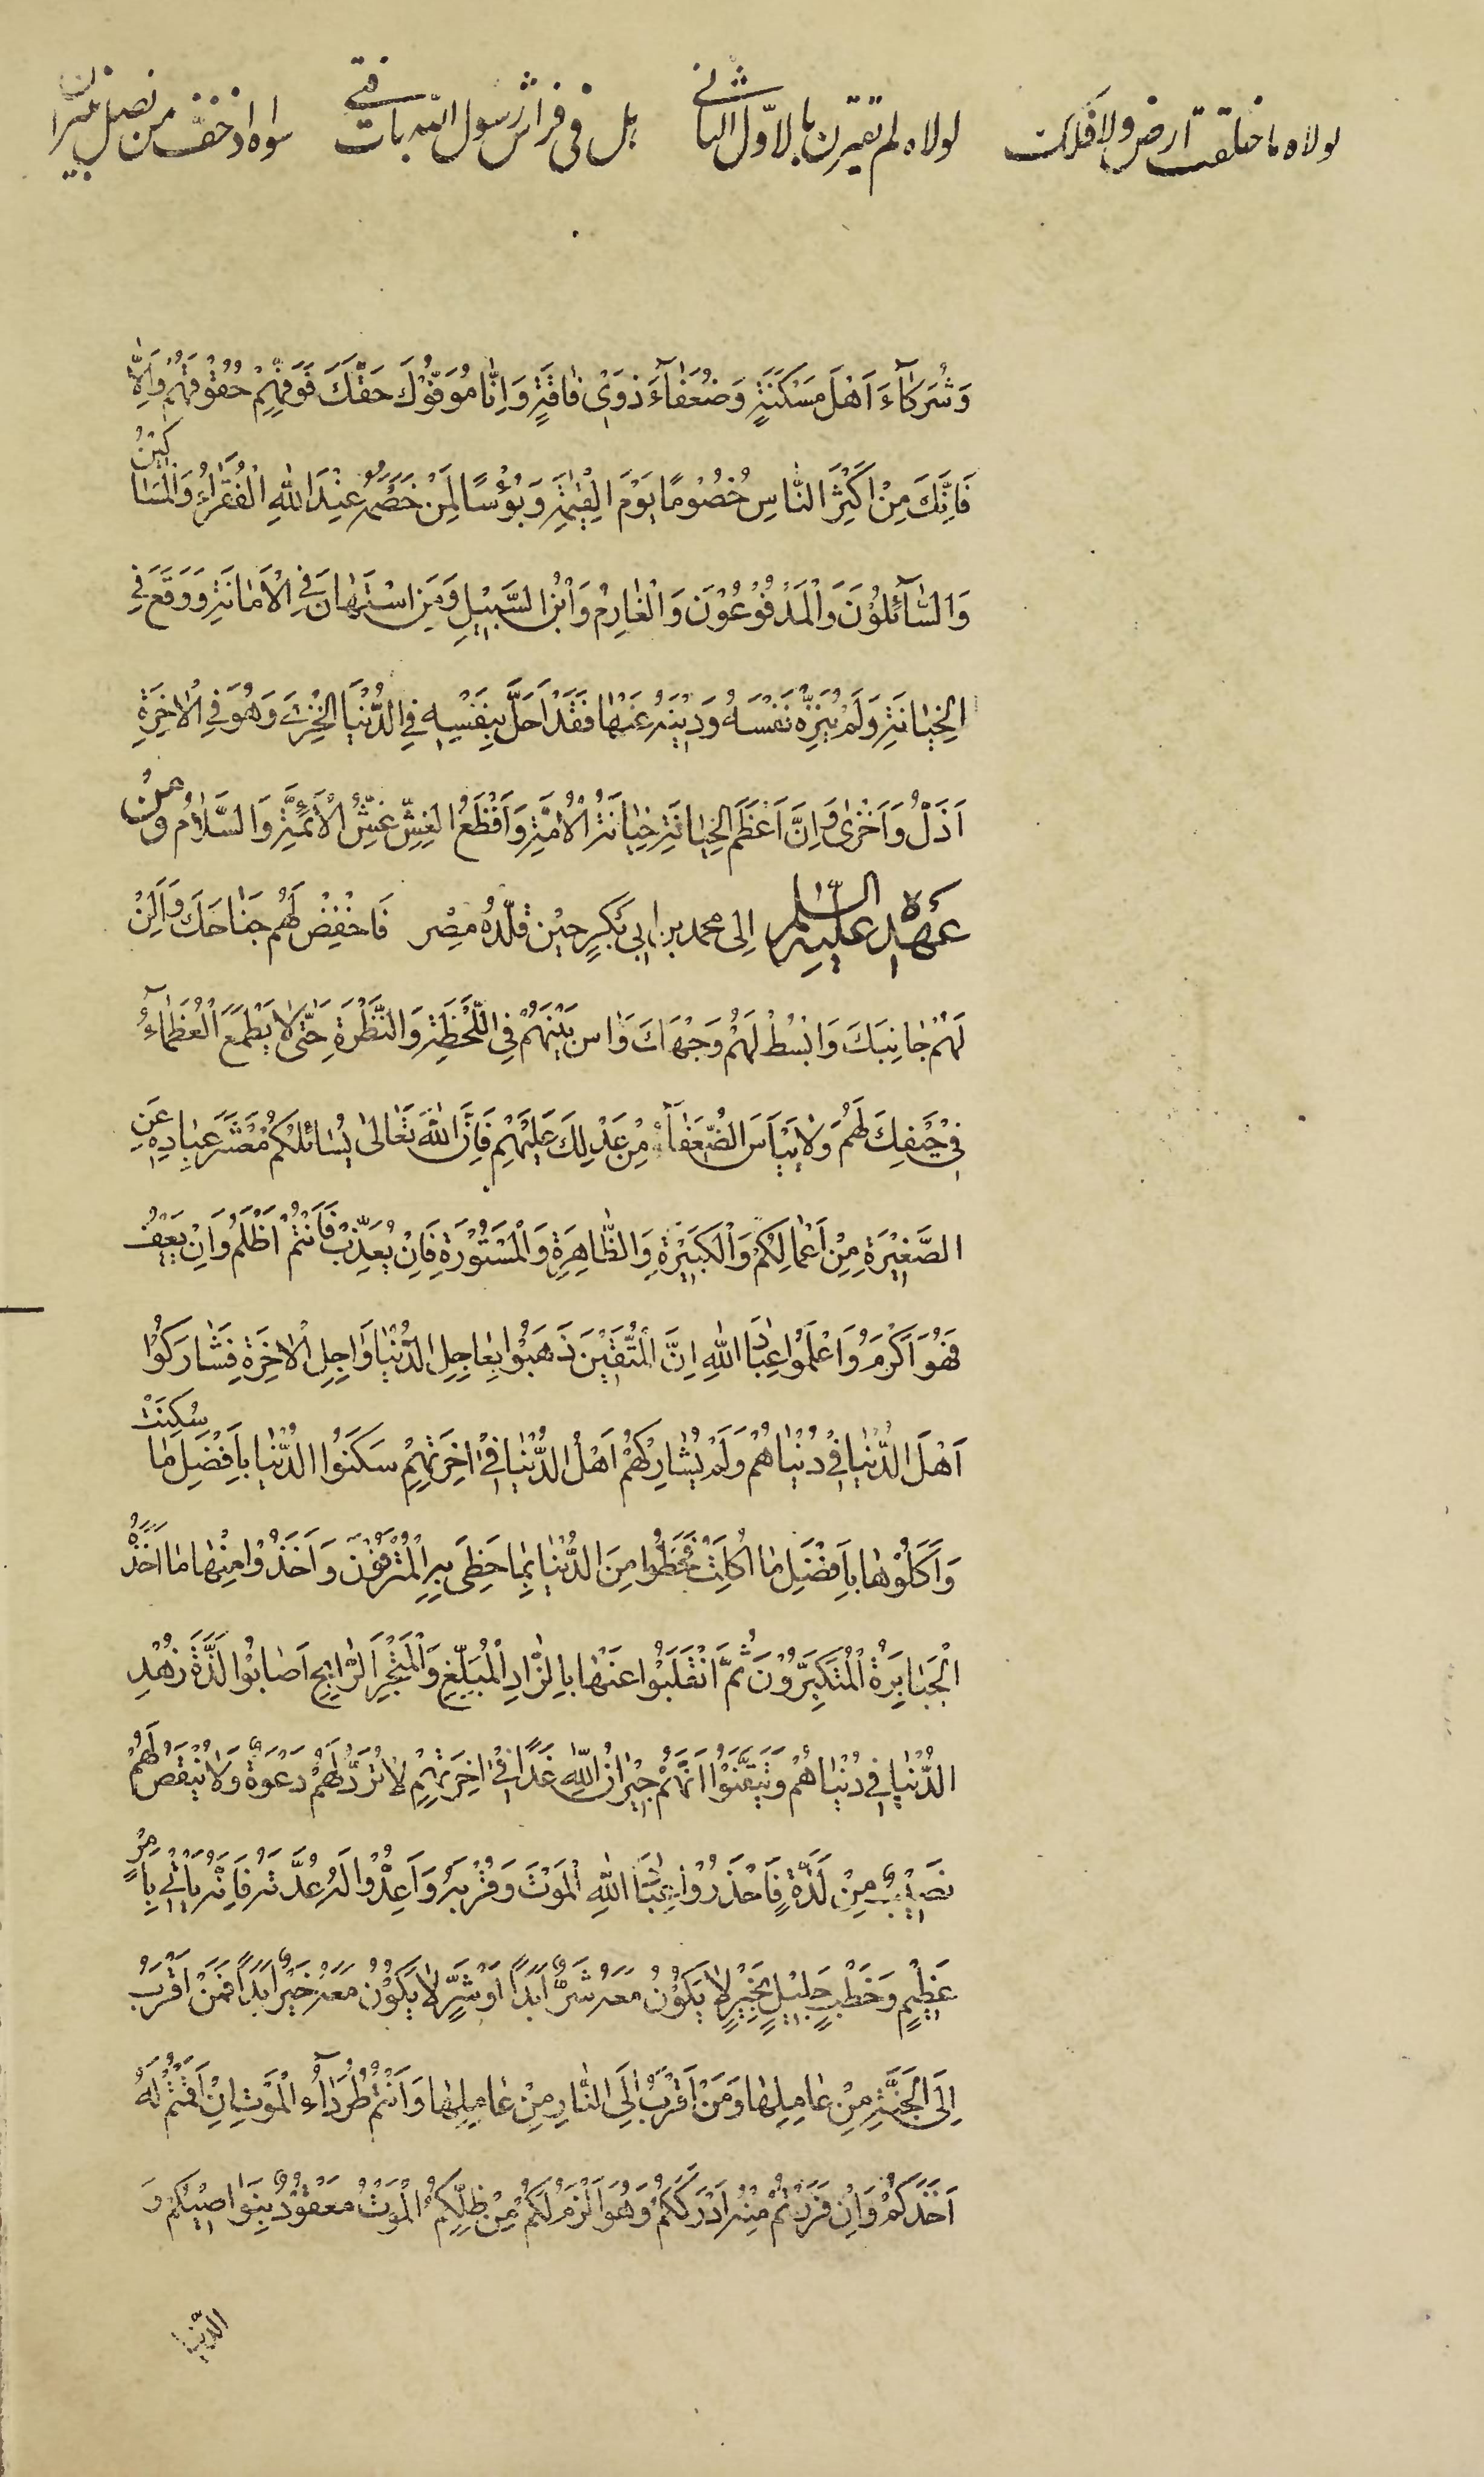 لولاه ما خلقت ارض ولا فلك لولاه لم تقترن بالاول الثاني بل في فراش رسول الله بات فتى سواه اذ خف من نصل
وَشُرَكَآءَ اَهْلَ مَسْكَنَةٍ وَضُعَفَآءَ ذَوِىْ فَاقَةٍ وَاِنَّا مُوَفُّوْكَ حَقَّكَ فَوَفِّهِمْ حُقُوْقَهُمْ وَاِلَّا
فَاِنَّكَ مِنْ اَكْثَرِ النَّاسِ خُصُوْمًا يَوْمَ الْقِيٰمَةِ وَبُؤْسًا لِمَنْ خَصْمُهُ عِنْدَ اللّٰهِ الْفُقَرَاءُ وَالْمَسَاكِيْنُ
وَالسَّآئِلُوْنَ وَالْمَدْفُوْعُوْنَ وَالْغَارِمُ وَابْنُ السَّبِيْلِ وَمَنِ اسْتَهَانَ فِى الْاَمَانَةِ وَوَقَعَ فِى
الْخِيَانَةِ وَلَمْ يُنَزِّهْ نَفْسَهُ وَدِيْنَهُ عَنْهَا فَقَدْ اَحَلَّ بِنَفْسِهِ فِى الدُّنْيَا الْخِزْىَ وَهُوَ فِى الْاٰخِرَةِ
اَذَلُّ وَاَخْزٰى وَاِنَّ اَعْظَمَ الْخِيَانَةِ خِيَانَةُ الْاُمَّةِ وَاَفْظَعُ الْغِشِّ غِشُّ الْاَئِمَّةِ وَالسَّلَامُ وَمِنْ
عَهْدٍ لَهُ عليه السلم اِلى محمد بن ابي بَكْرٍ حِيْن قلّدَهُ مِصْر فَاخْفِضْ لَهُمْ جَنَاحَكَ وَاَلِنْ
لَهُمْ جَانِبَكَ وَابْسُطْ لَهُمْ وَجْهَكَ وَاٰسِ بَيْنَهُمْ فِى اللَّحْظَةِ وَالنَّظْرَةِ حَتّٰى لَا يَطْمَعَ الْعُظَمَآءُ
فِىْ حَيْفِكَ لَهُمْ وَلَا يَيْاَسَ الضُّعَفَآءُ مِنْ عَدْلِكَ عَلَيْهِمْ فَاِنَّ اللّٰهَ تَعَالٰى يُسَائِلُكُمْ مَعْشَرَ عِبَادِهِ عَنِ
الصَّغِيْرَةِ مِنْ اَعْمَالِكُمْ وَالْكَبِيْرَةِ وَالظَّاهِرَةِ وَالْمَسْتُوْرَةِ فَاِنْ يُعَذِّبْ فَاَنْتُمْ اَظْلَمُ وَاِنْ يَعْفُ
فَهُوَ اَكْرَمُ وَاعْلَمُوْا عِبَادَ اللّٰهِ اِنَّ الْمُتَّقِيْنَ ذَهَبُوْا بِعَاجِلِ الدُّنْيَا وَاٰجِلِ الْاٰخِرَةِ فَشَارَكُوْا
اَهْلَ الدُّنْيَا فِىْ دُنْيَاهُمْ وَلَمْ يُشَارِكْهُمْ اَهْلُ الدُّنْيَا فِىْ اٰخِرَتِهِمْ سَكَنُوا الدُّنْيَا بِاَفْضَلِ مَا سُكِنَتْ
وَاَكَلُوْهَا بِاَفْضَلِ مَا اُكِلَتْ فَحَظُوا مِنَ الدُّنْيَا بِمَا حَظِىَ بِهِ الْمُتْرَفُوْنَ وَاَخَذُوْا مِنْهَا مَا اَخَذَهُ
الْجَبَابِرَةُ الْمُتَكَبِّرُوْنَ ثُمَّ انْقَلَبُوْا عَنْهَا بِالزَّادِ الْمُبَلِّغِ وَالْمَتْجَرِ الرَّابِحِ اَصَابُوْا لَذَّةَ زُهْدِ
الدُّنْيَا فِى دُنْيَاهُمْ وَتَيَقَّنُوْا اَنَّهُمْ جِيْرَانُ اللّٰهِ غَدًا فِىْ اٰخِرَتِهِمْ لَا تُرَدُّ لَهُمْ دَعْوَةٌ وَلَا يُنْقَصُ لَهُمْ
نَصِيْبٌ مِنْ لَذَّةٍ فَاحْذَرُوْا عِبَادَ اللّٰهِ الْمَوْتَ وَقُرْبَهُ وَاَعِدُّوْا لَهُ عُدَّتَهُ فَاِنَّهُ يَاْتِىْ بِاَمْرٍ
عَظِيْمٍ وَخَطْبٍ جَلِيْلٍ بِخَيْرٍ لَا يَكُوْنُ مَعَهُ شَرٌّ اَبَدًا اَوْ شَرٍّ لَا يَكُوْنُ مَعَهُ خَيْرٌ اَبَدًا فَمَنْ اَقْرَبُ
اِلَى الْجَنَّةِ مِنْ عَامِلِهَا وَمَنْ اَقْرَبُ اِلَى النَّارِ مِنْ عَامِلِهَا وَاَنْتُمْ طُرَدَآءُ الْمَوْتِ اِنْ اَقَمْتُمْ لَهُ
اَخَذَكُمْ وَاِنْ فَرَرْتُمْ مِنْهُ اَدْرَكَكُمْ وَهُوَ اَلْزَمُ لَكُمْ مِنْ ظِلِّكُمْ الْمَوْتُ مَعْقُوْدٌ بِنَوَاصِيْكُمْ وَ
الدُّنْيَا